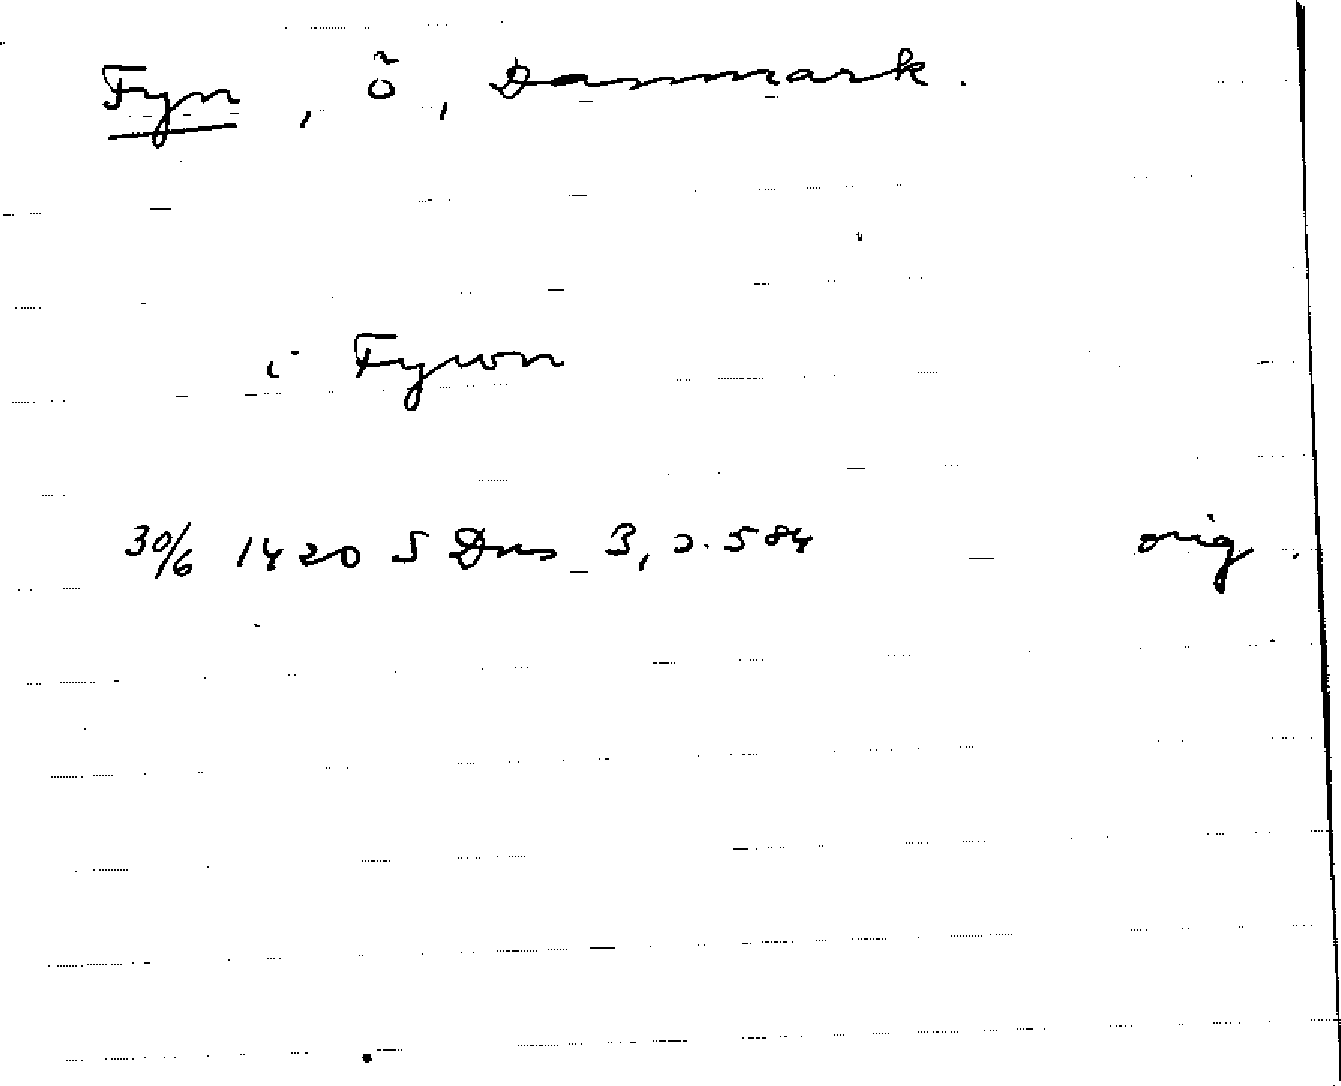 Fyn, ö, Danmark.
i Fywn
30/6 1420 SDns 3, s. 584 orig.